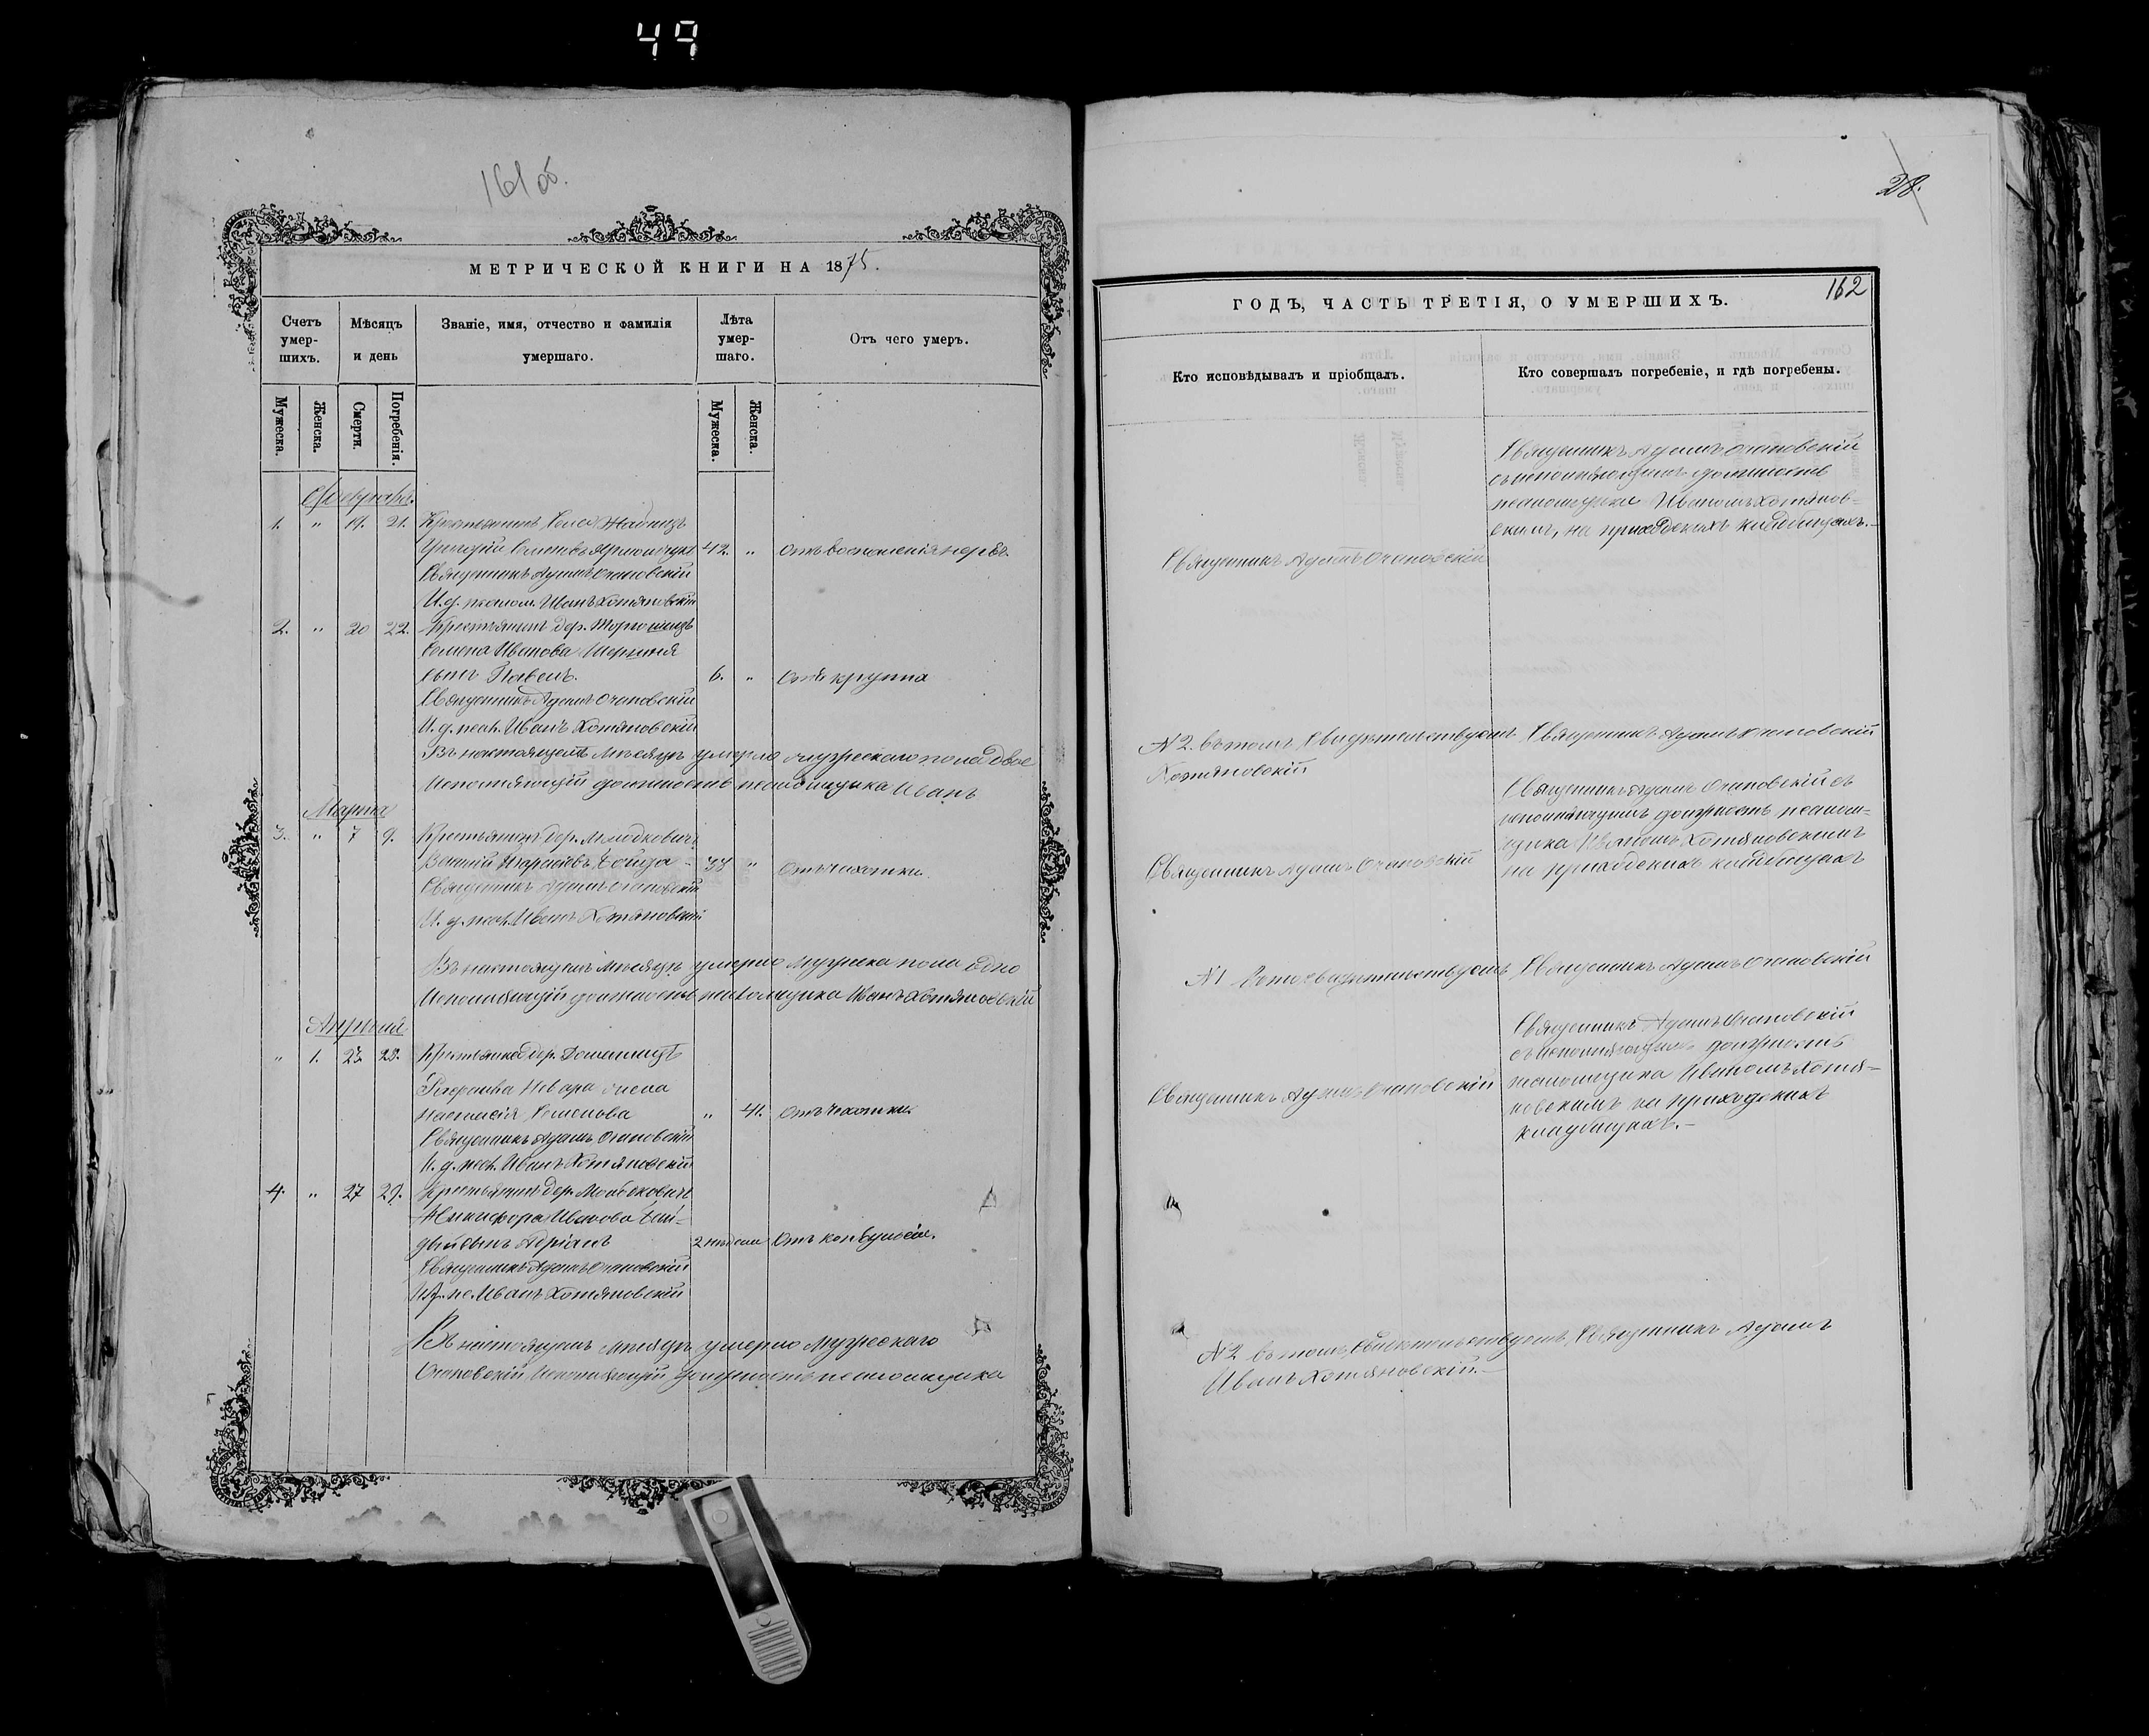 49
161 об.
МЕТРИЧЕСКОЙ КНИГИ НА 1875.
Счетъ умер-шихъ.
Мѣсяцъ и день
Званіе, имя, отчество и фамилія умершаго.
Лѣта умер-шаго.
Отъ чего умеръ.
Мужеска.
Женска.
Смерти.
Погребенія.
Мужеска.
Женска.
Февраль.
1. " 19. 21. Крестьянинъ Села
Семеновъ 42. " отъ воспаленія
Священникъ Адамъ Очаповскій
И. д. псалом. Иванъ Хотяновскій
2. " 20 22. Крестьянинъ дер.
Семена Иванова
сынъ Павелъ. 6. " Отъ круппа
Священникъ Адамъ Очаповскій
И. д. псал. Иванъ Хотяновскій
Въ настоящемъ мѣсяцѣ умерло мужескаго пола двое
Исполняющій должность псаломщика Иванъ
Мартъ
3. " 7 9. Крестьянинъ дер. Молодковичъ
" Отъ чахотки.
Священникъ Адамъ Очаповскій
И. д. псал. Иванъ Хотяновскій
Въ настоящемъ мѣсяцѣ умерло мужеска пола одно
Исполняющій должность псаломщика Иванъ Хотяновскій
Апрѣль
" 1. 27. 29. Крестьянка дер.
жена
Настасія Семенова " 41. Отъ чахотки.
Священникъ Адамъ Очаповскій
И. д. псал. Иванъ Хотяновскій
4. " 27 29. Крестьянинъ дер.
Никифора Иванова
сынъ Адріанъ 2 недели Отъ конвульсіи.
Священникъ Адамъ Очаповскій
Иванъ Хотяновскій
Въ настоящемъ мѣсяцѣ умерло мужескаго
Очаповскій Исполняющій должность псаломщика
28.
162
ГОДЪ, ЧАСТЬ ТРЕТІЯ, О УМЕРШИХЪ.
Кто исповѣдывалъ и пріобщалъ.
Кто совершалъ погребеніе, и гдѣ погребены.
Священникъ Адамъ Очаповскій
съ исполняющимъ должность
псаломщика Иваномъ Хотянов-
скимъ, на приходскихъ кладбищахъ.-
Священникъ Адамъ Очаповскій
N 2. въ томъ свидѣтельствуютъ Священникъ Адамъ Очаповскій
Хотяновскій
Священникъ Адамъ Очаповскій съ
исполняющимъ должность псалом-
щика Иваномъ Хотяновскимъ
на приходскихъ кладбищахъ
Священникъ Адамъ Очаповскій
N 1 въ томъ свидѣтельствуютъ Священникъ Адамъ Очаповскій
Священникъ Адамъ Очаповскій
съ исполняющимъ должность
псаломщика Иваномъ Хотя-
новскимъ на приходскихъ
кладбищахъ.-
Священникъ Адамъ Очаповскій
N 2 въ томъ свидѣтельствуютъ, Священникъ Адамъ
Иванъ Хотяновскій.-